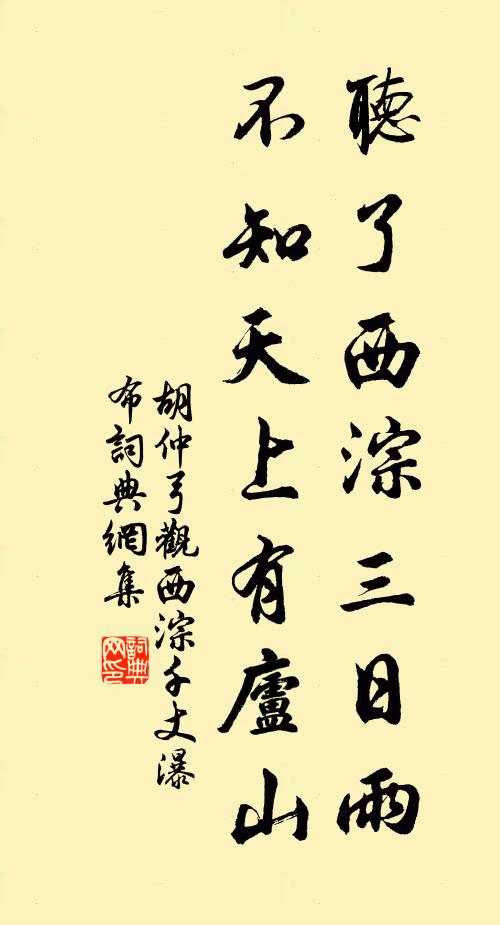 聽了西淙三日雨
不知天上有廬山
胡仲弓觀西淙千丈瀑
布詞典網集
詞典
网印